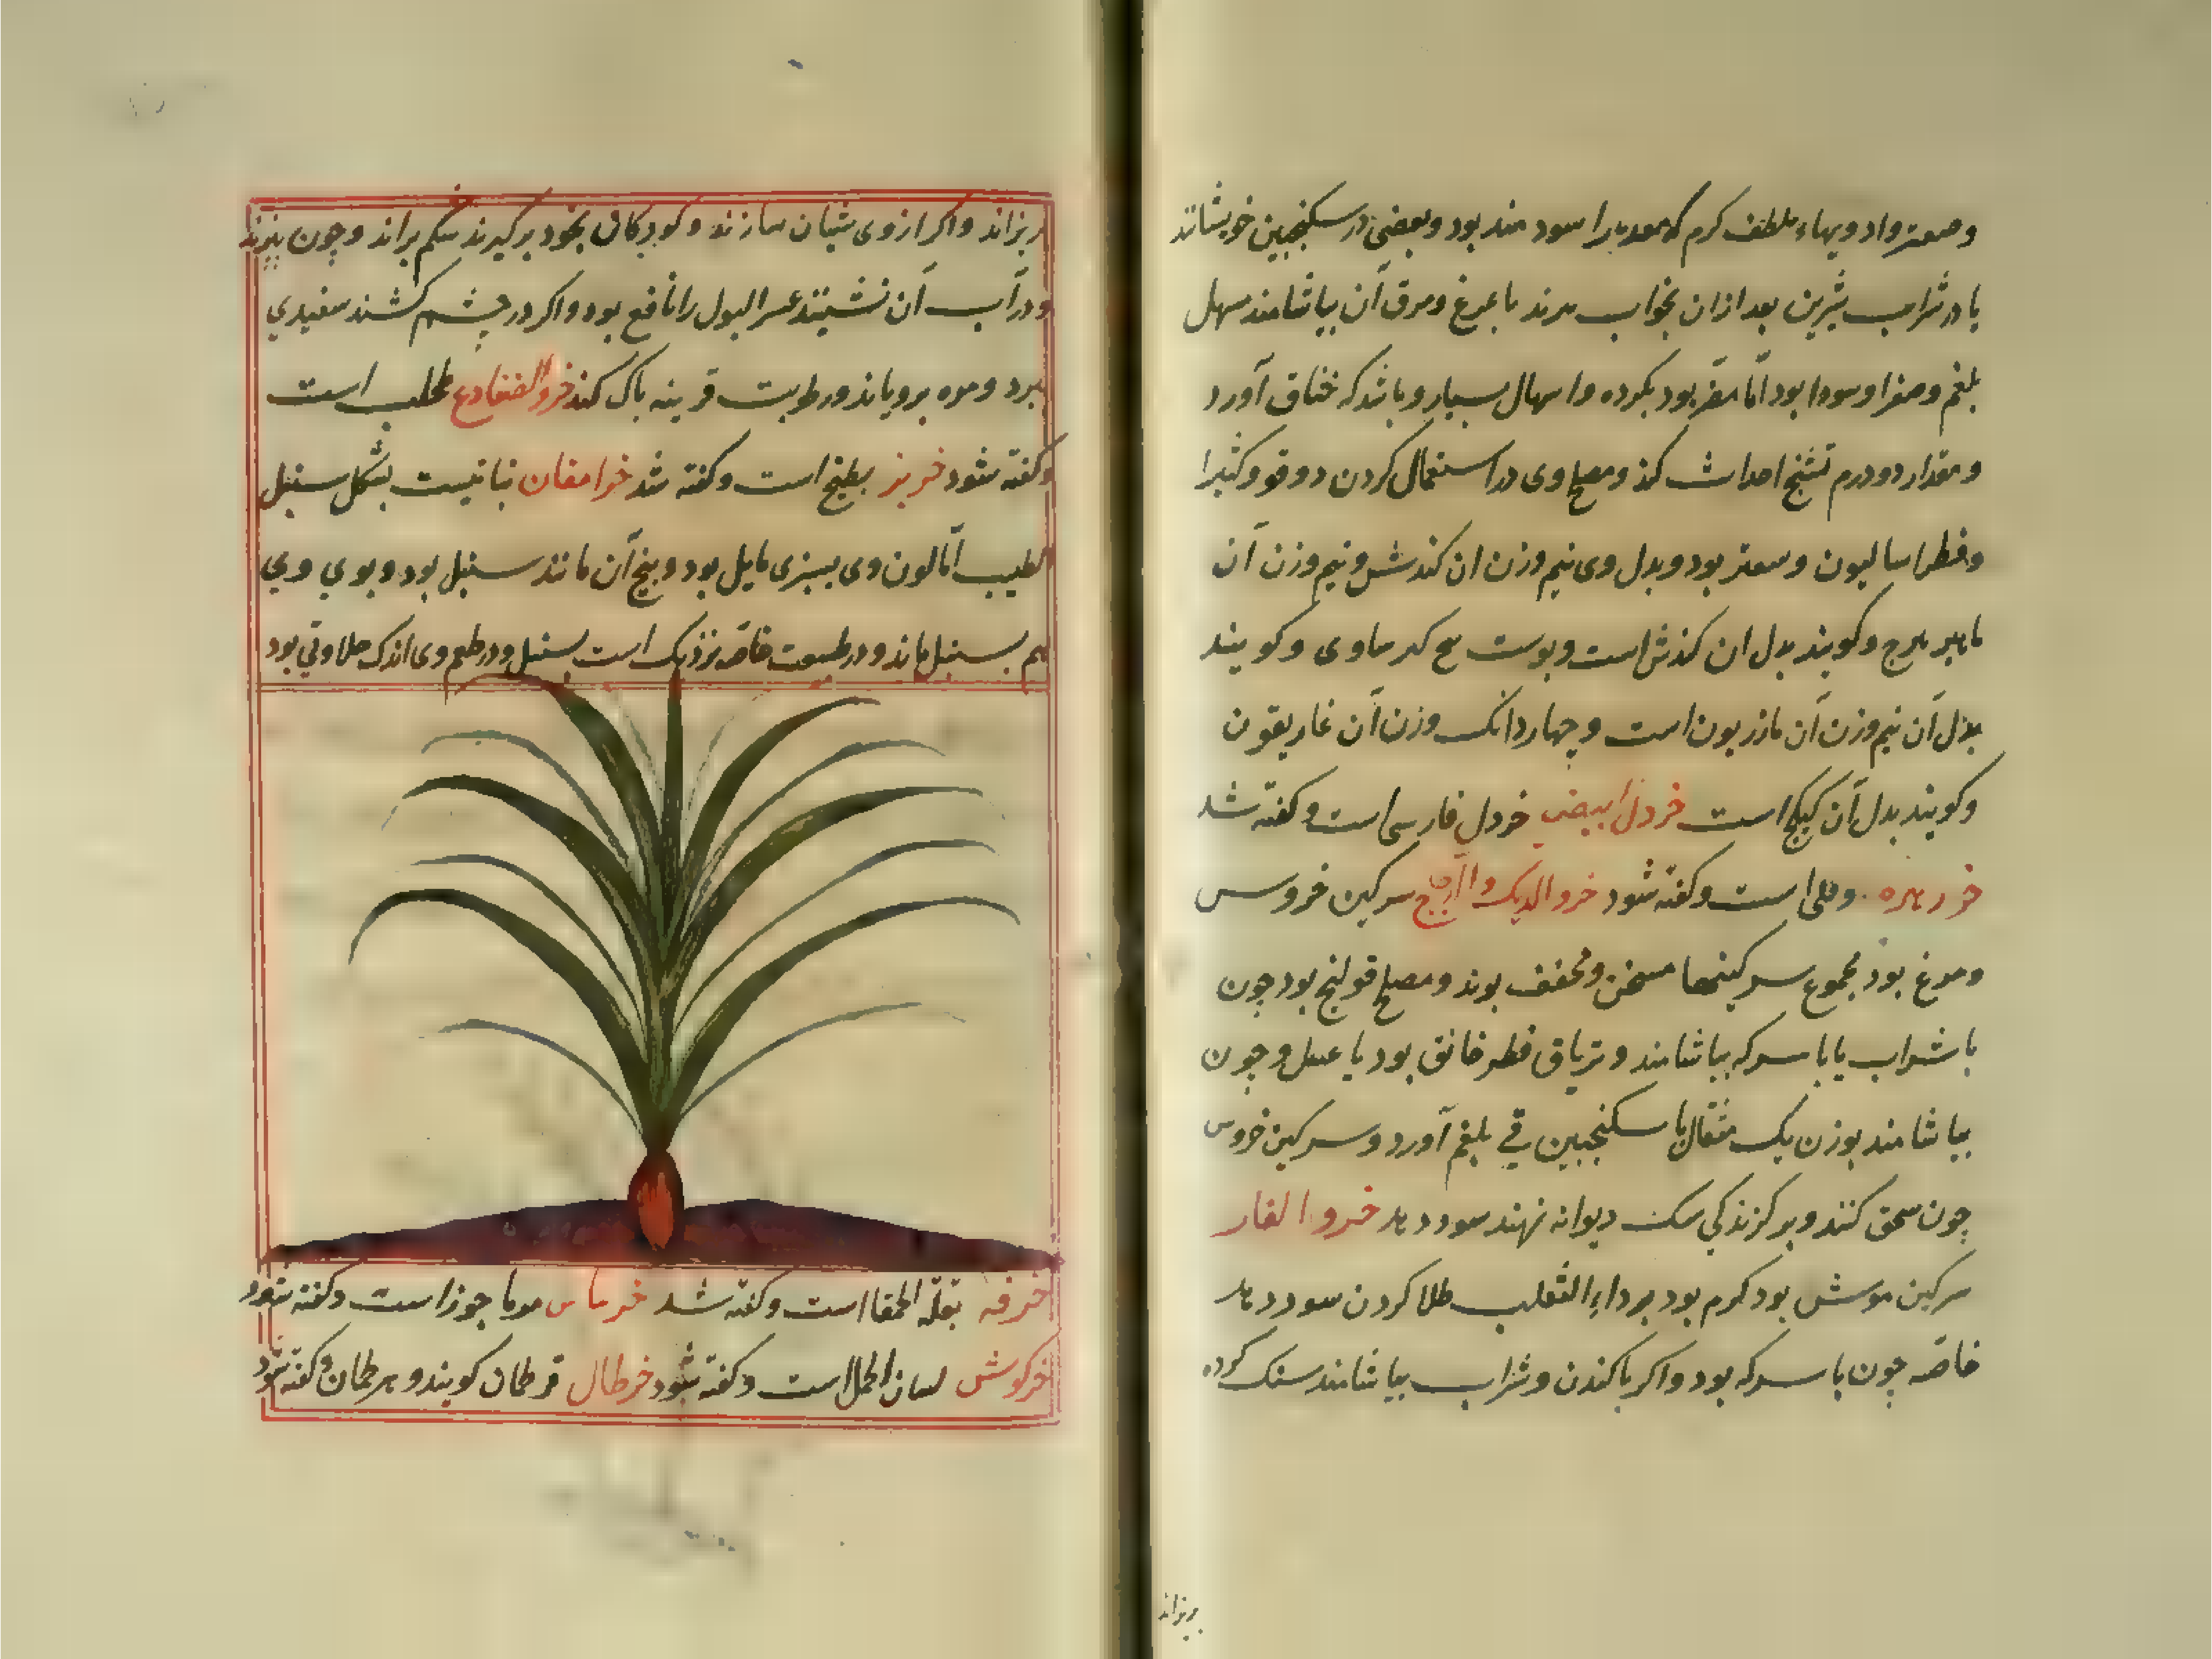 و صعتر و ادویهاء ملطف کرم که معده را سود مند بود و بعضی در سکنجبین خویشانند
یا در شراب شیرین بعد از ان بخواب برند با مرغ و مرق آن بیاشامند سهل
بلغم و صفرا و سودا بود اما مضر بود بکرده و اسهال بسیار و باشد که خناق آورد
و مقدار دو درم تشنج احداث کند و مصلح وی در استعمال کردن دوقو و کثیرا
و فطراسالیون و سعتر بود و بدل وی نیم وزن ان کندش و نیم وزن آن
ماهیز هرج و کویند بدل ان کندش است و پوست و کویند
بدل آن نیم وزن آن مازریون است و چهار دانک وزن آن غاریقون
و کویند بدل آن کبیکج است خردل ابیض خردل فارسی است و کفته شد
خر زهره دفلی است و کفته شود خرو الدیک و الدجاج سرکین خروس
و مرغ بود مجموع سرکینها مسخن و مجفف بوند و مصلح قولنج بود چون
با شراب یا با سرکه بیاشامند و تریاق فطر خانق بود با عسل و چون
بیاشامند بوزن یک مثقال با سکنجبین قی بلغم آورد و سرکین خروس
چون سحق کنند و بر کزندکی سک دیوانه نهند سود دهد خرو الفار
سرکین موش بود کرم بود بر داء الثعلب طلا کردن سود دهد
خاصه چون با سرکه بود و اکر با کندر و شراب بیاشامند سنک کرده
بریزاند
بریزاند و اکر از وی شیاف سازند و کودکان بخود برکیرند شکم براند و چون بپزند
و در آب آن نشینند عسر البول را نافع بود و اکر در چشم کشند سفیدی
ببرد و موه برویاند و رطوبت قرینه پاک کند خرو الضفادع طحلب است
و کفته شود خربز بطیخ است و کفته شد خرامقان نباتیست بشکل سنبل
الطیب اما لون وی بسبزی مایل بود و بیخ آن مانند سنبل بود و بوی وی
هم بسنبل ماند و در طبیعت خاصه نزدیک است بسنبل و در طعم وی اندک حلاوتی بود
خرفه بقلة الحمقا است و کفته شد خرماس مورما جوزا است و کفته شود
خرکوش لسان الحمل است و کفته شود خرطال قرطمان کویند و هرطمان و کفته شود